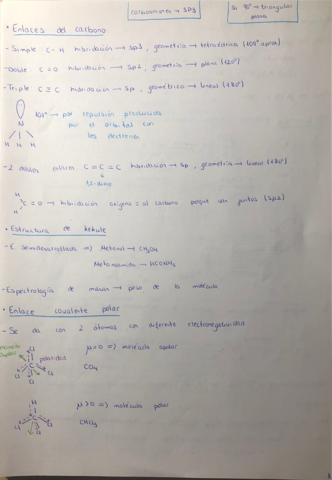 carbaniones → sp3
Si 90° → triangular plana
• Enlaces del carbono
- Simple C - H hibridación → sp3, geometría → tetraédrica (109° aprox)
- Doble C = O hibridación → sp2, geometría → plana (120°)
- Triple C ≡ C hibridación → sp, geométrico → lineal (180°)
N
H H H
107° → por repulsión producida
por el orbital con
los electrones
- 2 dobles C = C = C hibridación → sp, geometría → lineal (180°)
H
H
C = O → hibridación oxígeno = al carbono porque van juntos (sp2)
• Estructura de kekule
- E. semidesarrollada => Metanol → CH3OH
Metanamida → HCONH2
- Espectrología de masas → peso de la molécula
• Enlace covalente polar
- Se da con 2 átomos con diferente electronegatividad
Cl
C
Cl
Cl
Cl
polaridad
μ = 0 => molécula apolar
CCl4
H
C
Cl
Cl
Cl
μ > 0 => molécula polar
CHCl3